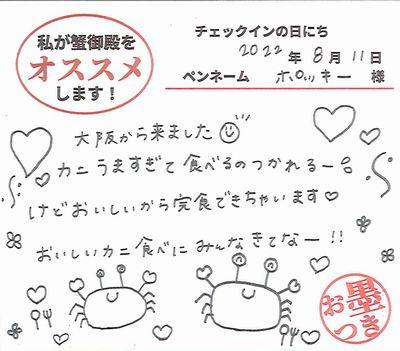 私が蟹御殿を
オススメ
します！
チェックインの日にち
2022年8月11日
ペンネーム ポロッキー 様
大阪から来ました
カニうますぎて食べるのつかれるー。
けどおいしいから完食できちゃいます♡
おいしいカニ食べにみんなきてなー!!
お墨
つき